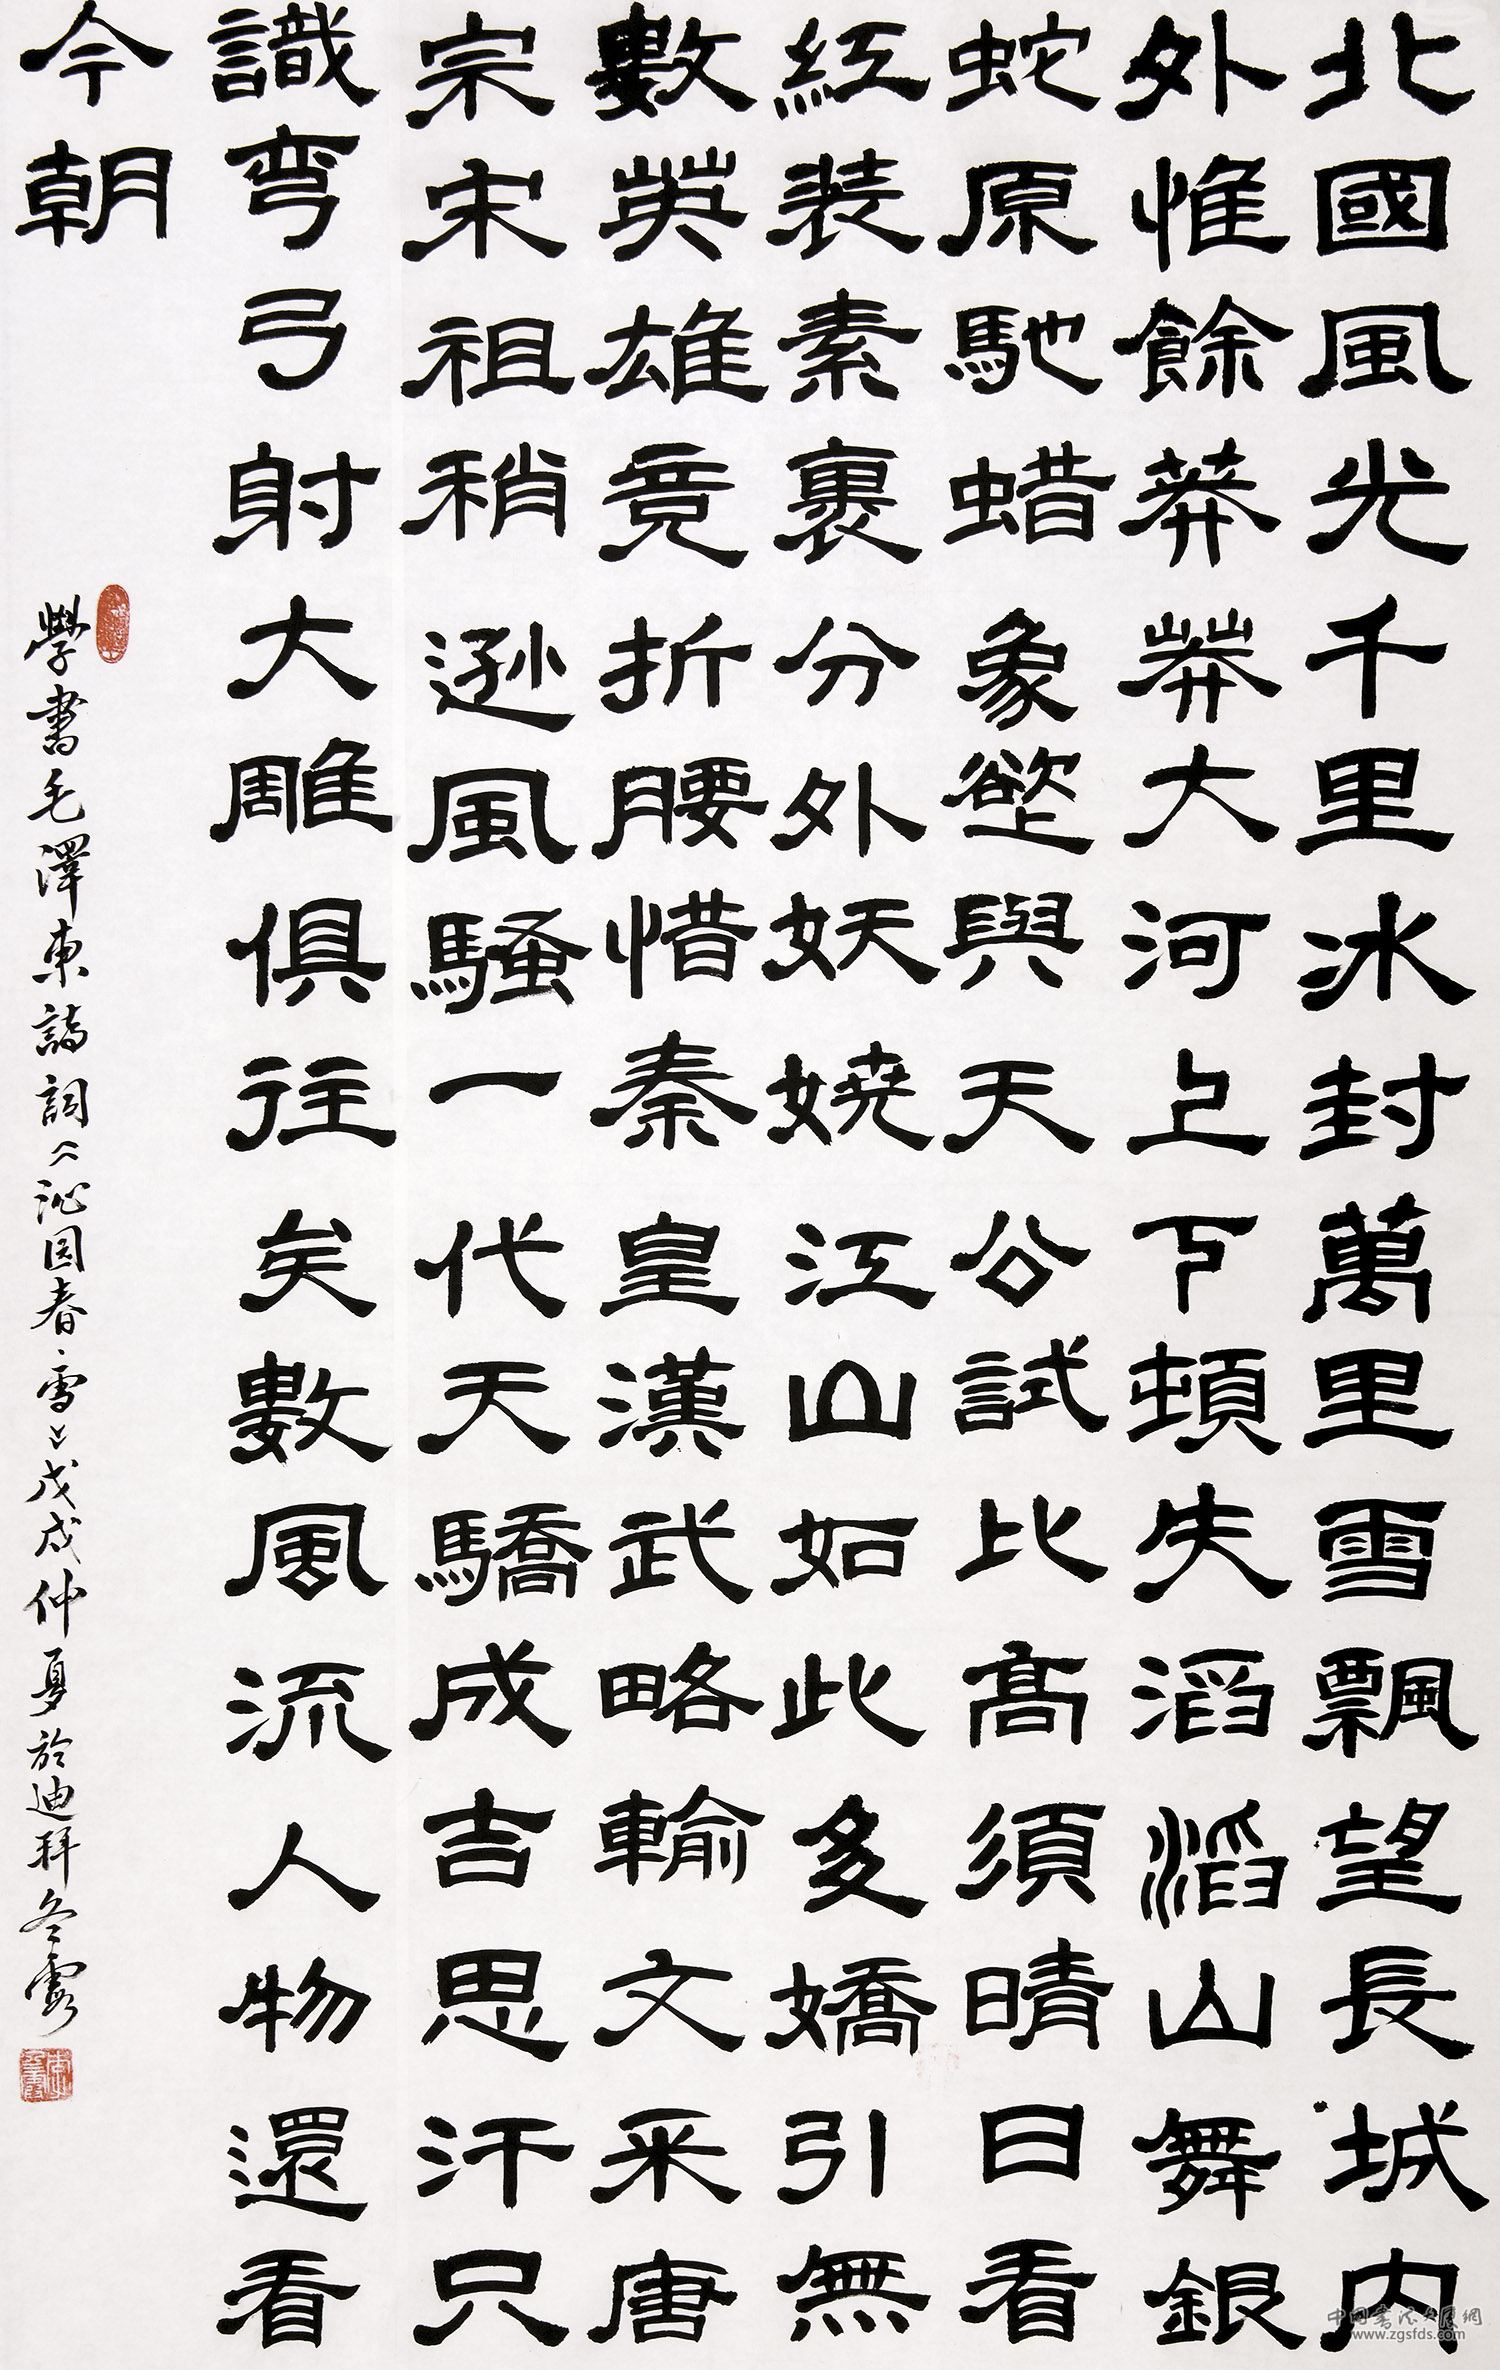 北國風光千里冰封萬里雪飄望長城內
外惟餘莽莽大河上下頓失滔滔山舞銀
蛇原馳蜡象慾與天公試比高須晴日看
紅裝素裹分外妖嬈江山如此多嬌引無
數英雄竟折腰惜秦皇漢武略輸文采唐
宗宋祖稍遜風騷一代天驕成吉思汗只
識彎弓射大雕俱往矣數風流人物還看
今朝
學書毛澤東詩詞《沁园春·雪》戊戌仲夏於迪拜冬霞
中国书法大展网
www.zgsfds.com